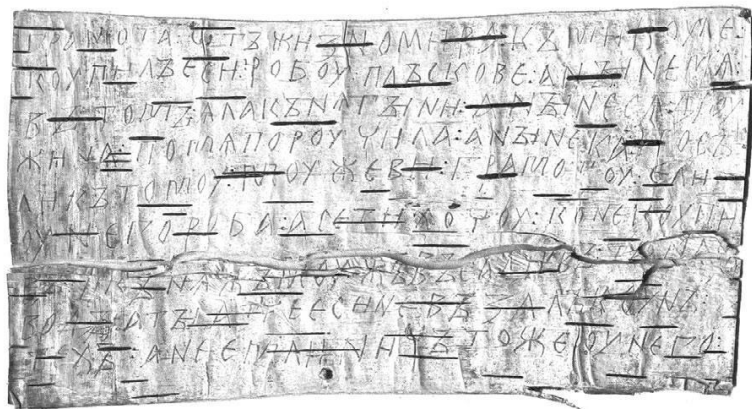 грамота : ѡтъ жизномира : къ микоуле :
коупилъ еси : робоу : плъскове : а ныне мѧ :
въ томъ : ѧла кънѧгыни : а ныне сѧ дроу
жина : по мѧ пороучила : а ныне ка : посъ
ли къ томоу : моужеви : грамотоу : ели
оу него роба : а се ти хочоу : коне коупи
въ : и кънѧжъ моужъ въсадивъ : та на съ
воды : а ты атче еси не възалъ коунъ
техъ : а не емли : ничъто же оу него :